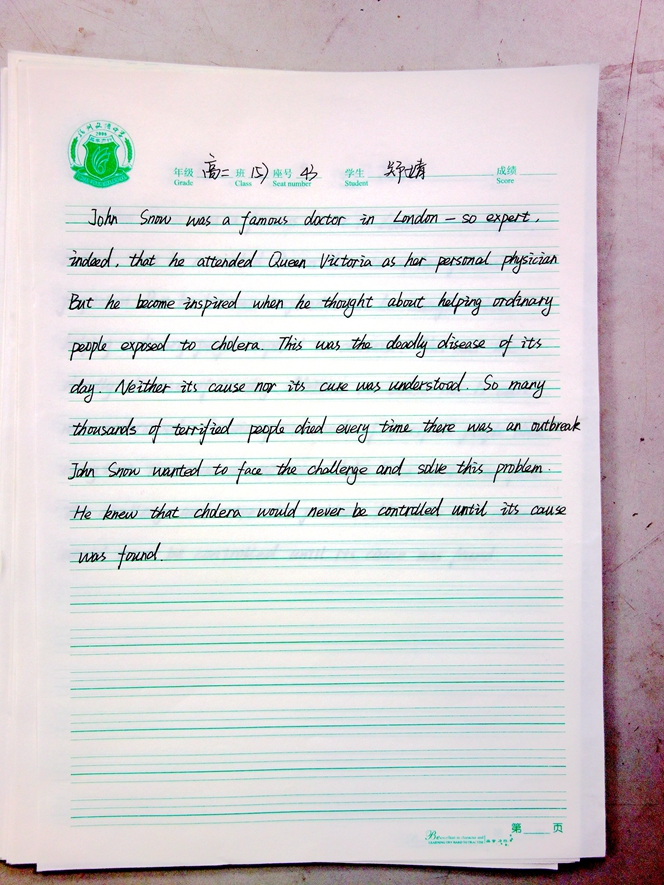 年级 高二 班 (5) 座号 43 学生 郑婧 成绩
Grade Class Seat number Student Score
John Snow was a famous doctor in London – so expert,
indeed, that he attended Queen Victoria as her personal physician
But he become inspired when he thought about helping ordinary
people exposed to cholera. This was the deadly disease of its
day. Neither its cause nor its cure was understood. So many
thousands of terrified people died every time there was an outbreak
John Snow wanted to face the challenge and solve this problem.
He knew that cholera would never be controlled until its cause
was found.
第 页